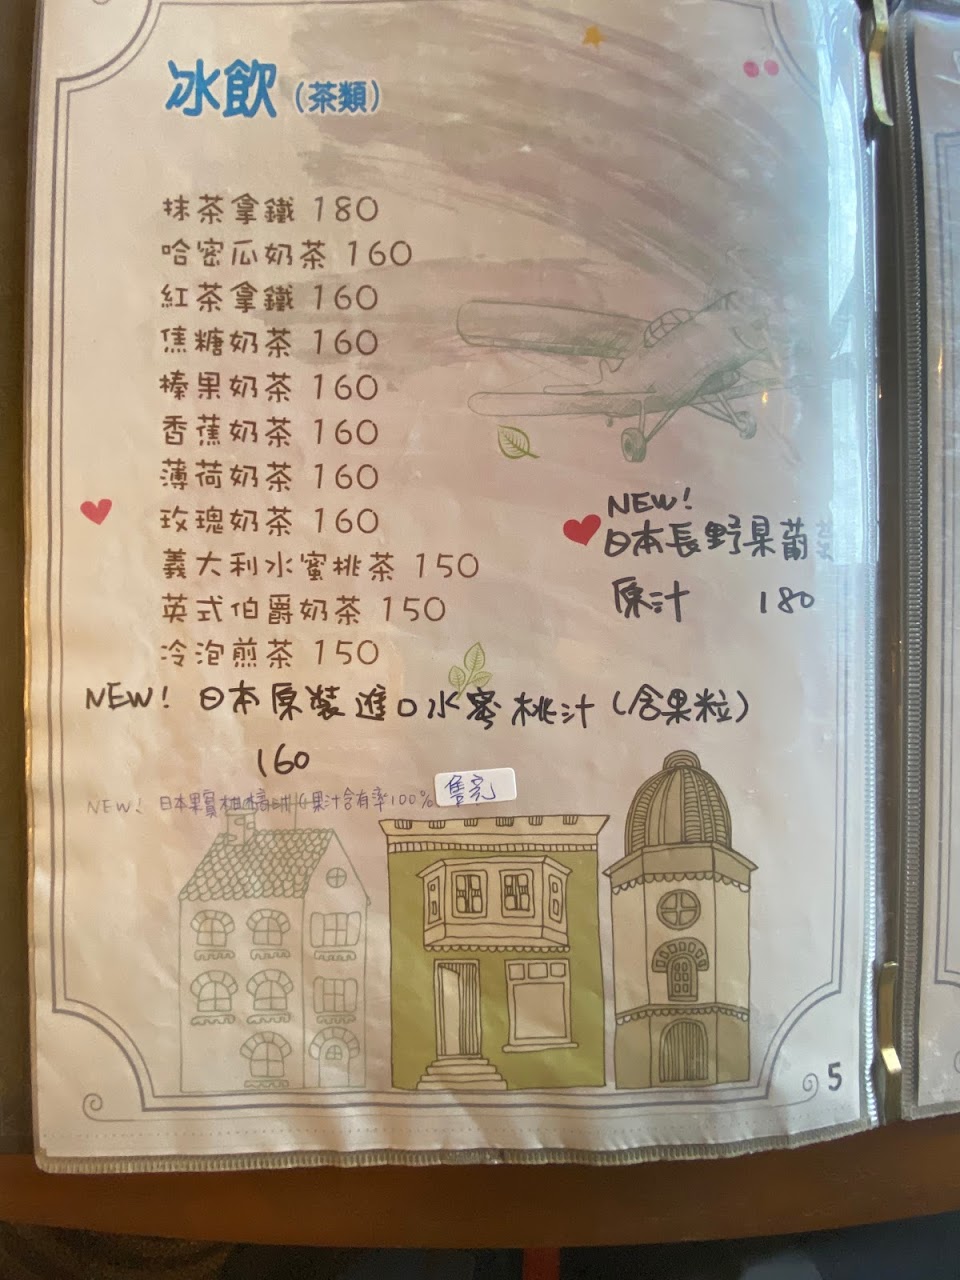 冰飲（茶類）
抹茶拿鐵 180
哈密瓜奶茶 160
紅茶拿鐵 160
焦糖奶茶 160
榛果奶茶 160
香蕉奶茶 160
薄荷奶茶 160
玫瑰奶茶 160
義大利水蜜桃茶 150
英式伯爵奶茶 150
冷泡煎茶 150
NEW!
日本長野県葡萄
原汁 180
NEW! 日本原裝進口水蜜桃汁（含果粒）
160
NEW! 日本果實柚橘 果汁含有率100% 售完
5